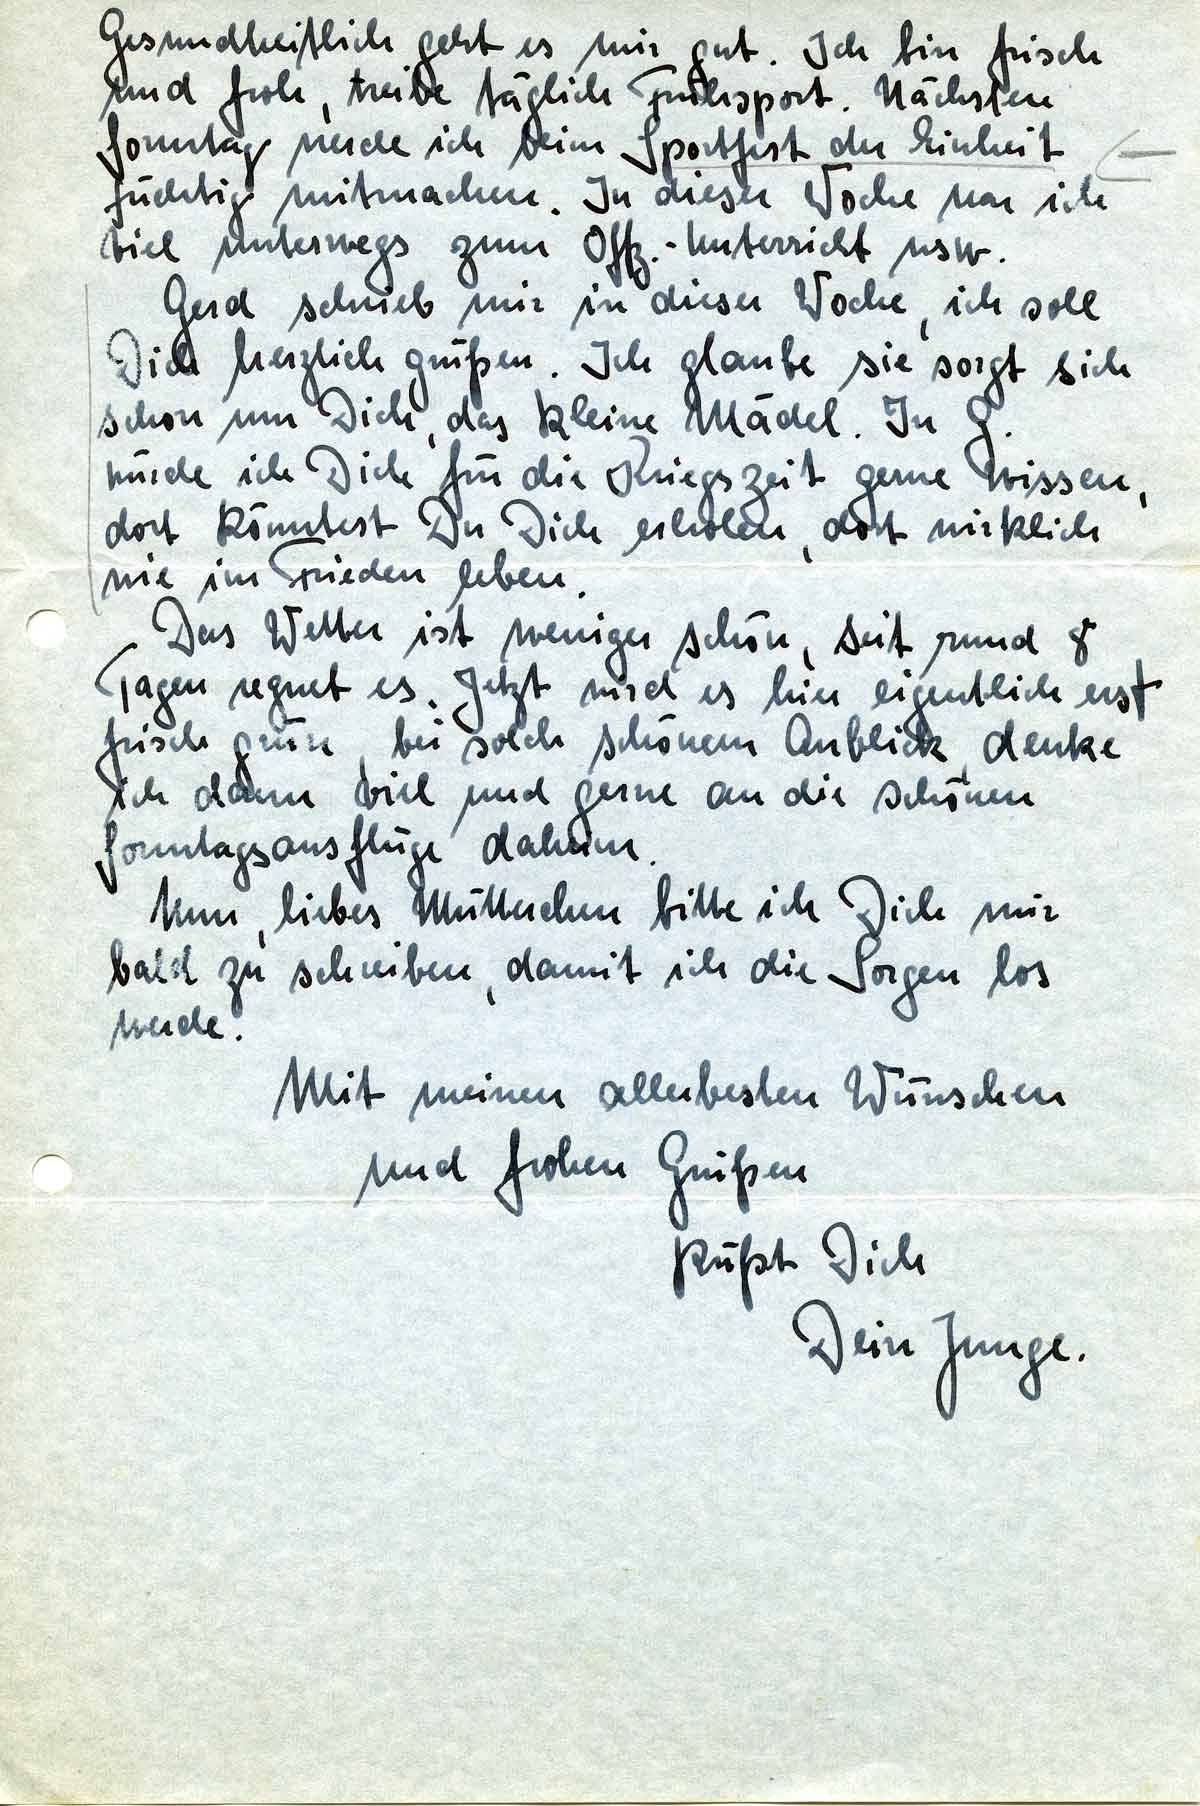 Gesundheitlich geht es mir gut. Ich bin frisch
und froh, treibe täglich Frühsport. Nächsten
Sonntag werde ich beim Sportfest der Einheit
tüchtig mitmachen. In dieser Woche war ich
viel unterwegs zum Offz.-Unterricht usw.
Gerd schrieb mir in dieser Woche, ich soll
Dich herzlich grüßen. Ich glaube sie sorgt sich
schon um Dich, das kleine Mädel. In G.
würde ich Dich für die Kriegszeit gerne wissen,
dort könntest Du Dich erholen, dort wirklich
wie im Frieden leben.
Das Wetter ist weniger schön, seit rund 8
Tagen regnet es. Jetzt wird es hier eigentlich erst
frisch grün, bei solch schönem Anblick denke
ich dann viel und gerne an die schönen
Sonntagsausflüge daheim.
Nun, liebes Mütterchen bitte ich Dich mir
bald zu schreiben, damit ich die Sorgen los
werde.
Mit meinen allerbesten Wünschen
und frohen Grüßen
küßt Dich
Dein Junge.